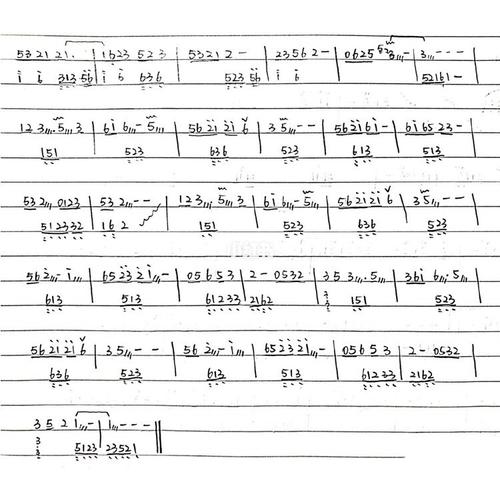 5321 21. | 1623 523 | 53212 - | 23562 - | 0625 523,,,- | 3,,,- - -
i i 313 56 | i 6 636 | 523 56 | i i | | 52161 -
123,,,-5,,,3 | 6i 6,,,-5,,, | 56 2i 2i 6 | 35,,,- - | 562i6i- | 6i6523-
151 | 523 | 636 | 523 | 613 | 513
532,,, 0123 | 532,,,- - | 123,,,5,,,3 | 6i6,,,-5,,, | 562i2i6 | 35,,,- -
512332 | 162 | 151 | 523 | 636 | 523
562,,,-i,,, | 65232i,,,- | 05653 | 2-0532 | 353,,,.5,,, | 36i 6,,,.5,,,
613 | 513 | 61233 | 2162 | 3 3 151 | 523
56 2i 2i 6 | 35,,,- - | 56 2,,,-i,,, | 65232i,,,- | 05653 | 2-0532
636 | 523 | 613 | 513 | 61233 | 2162
3521,,,- | 1,,,- - - ||
3 3 i 5123 | 23521